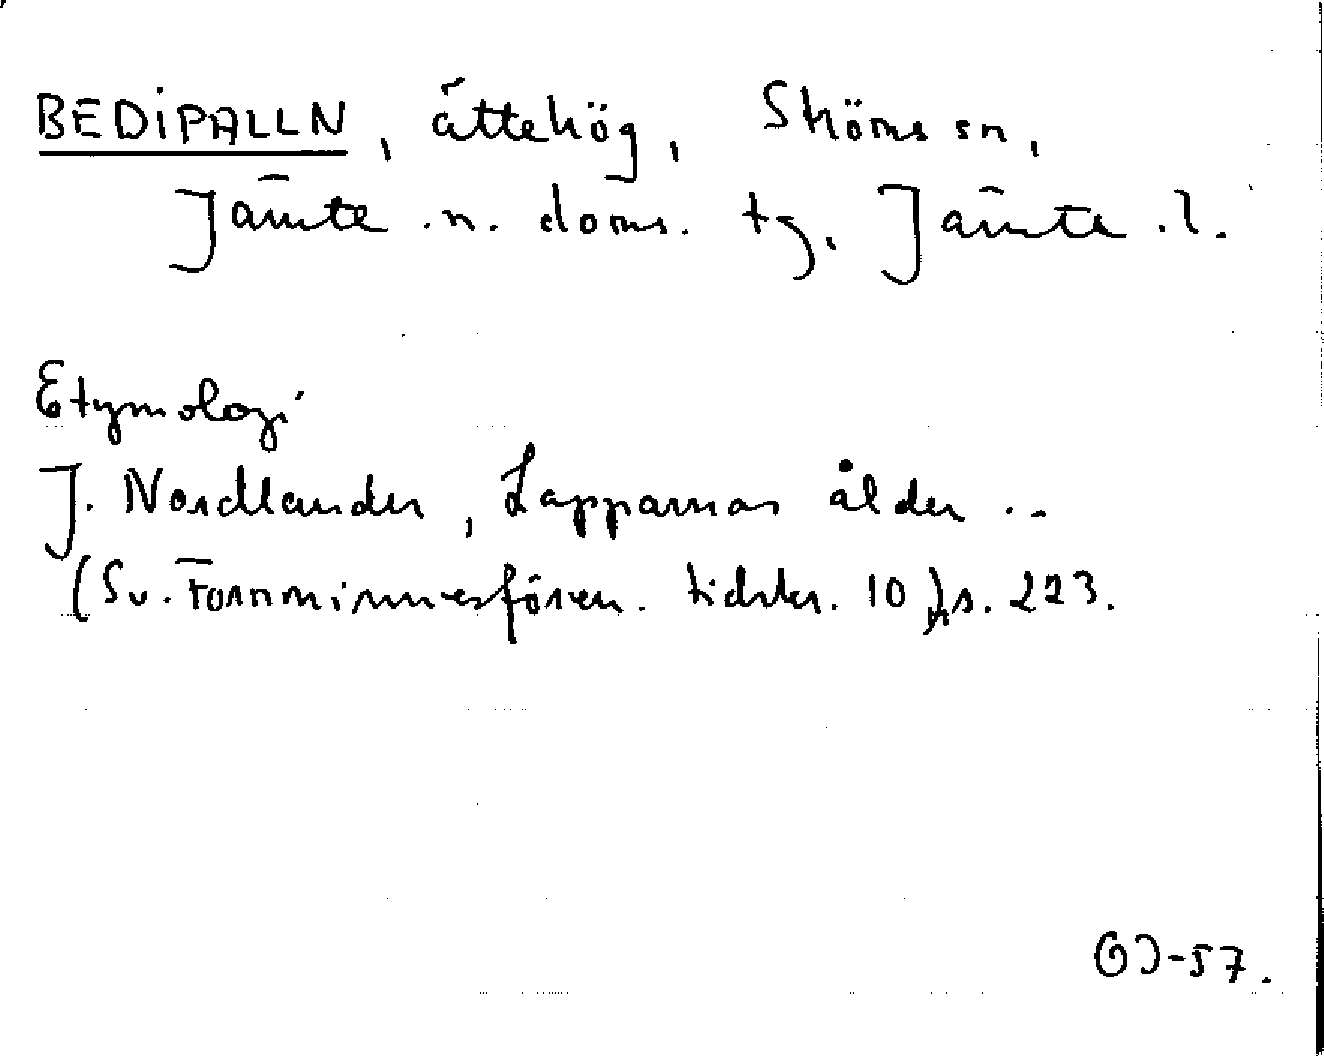 BEDIPALLN, ättehög, Ströms sn,
Jämte. n. doms. tg, Jämte. l.
Etymologi
J. Nordlander, Lapparnas ålder ..
(Sv. Fornminnesfören. tidskr. 10), s. 223.
-57.